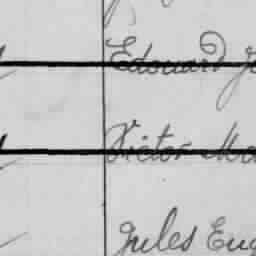 Edouard
Victor
Jules Eug